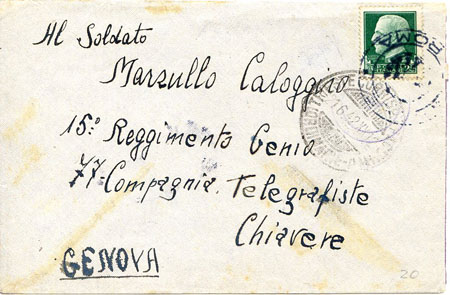 Al Soldato
Marzullo Caloggiro
15º Reggimento Genio
77ª Compagnia Telegrafiste
Chiavere
GENOVA
ROMA
20